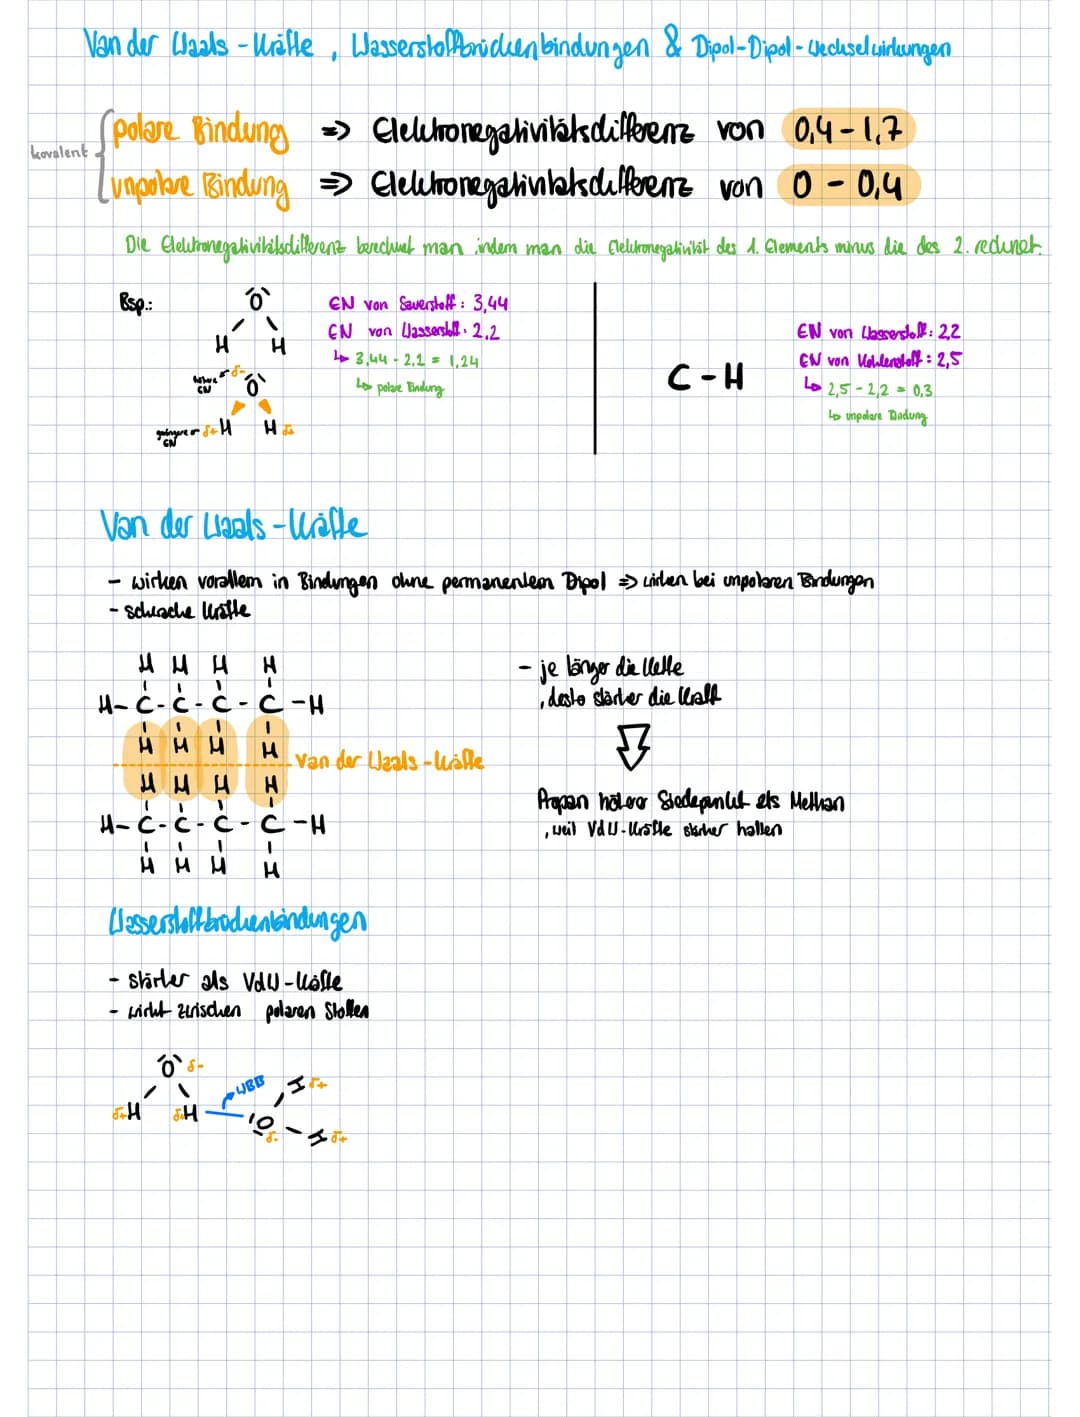 Van der Waals - Kräfte , Wasserstoffbrückenbindungen & Dipol-Dipol-Wechselwirkungen
kovalent
polare Bindung => Elektronegativitätsdifferenz von 0,4 - 1,7
unpolare Bindung => Elektronegativitätsdifferenz von 0 - 0,4
Die Elektronegativitätsdifferenz berechnet man, indem man die Elektronegativität des 1. Elements minus die des 2. rechnet.
Bsp.:
O
H H
EN von Sauerstoff: 3,44
EN von Wasserstoff: 2,2
↳ 3,44 - 2,2 = 1,24
↳ polare Bindung
höhere EN δ- O
geringere EN δ+ H H δ+
C - H
EN von Wasserstoff: 2,2
EN von Kohlenstoff: 2,5
↳ 2,5 - 2,2 = 0,3
↳ unpolare Bindung
Van der Waals - Kräfte
- wirken vorallem in Bindungen ohne permanentem Dipol => wirken bei unpolaren Bindungen
- schwache Kräfte
H H H H
H - C - C - C - C - H
H H H H
Van der Waals - Kräfte
H H H H
H - C - C - C - C - H
H H H H
- je länger die Kette
, desto stärker die Kraft
Propan höherer Siedepunkt als Methan
, weil VdW-Kräfte stärker halten
Wasserstoffbrückenbindungen
- stärker als VdW-Kräfte
- wirkt zwischen polaren Stoffen
O δ-
δ+ H δ+ H
WBB
H δ+
O δ-
H δ+